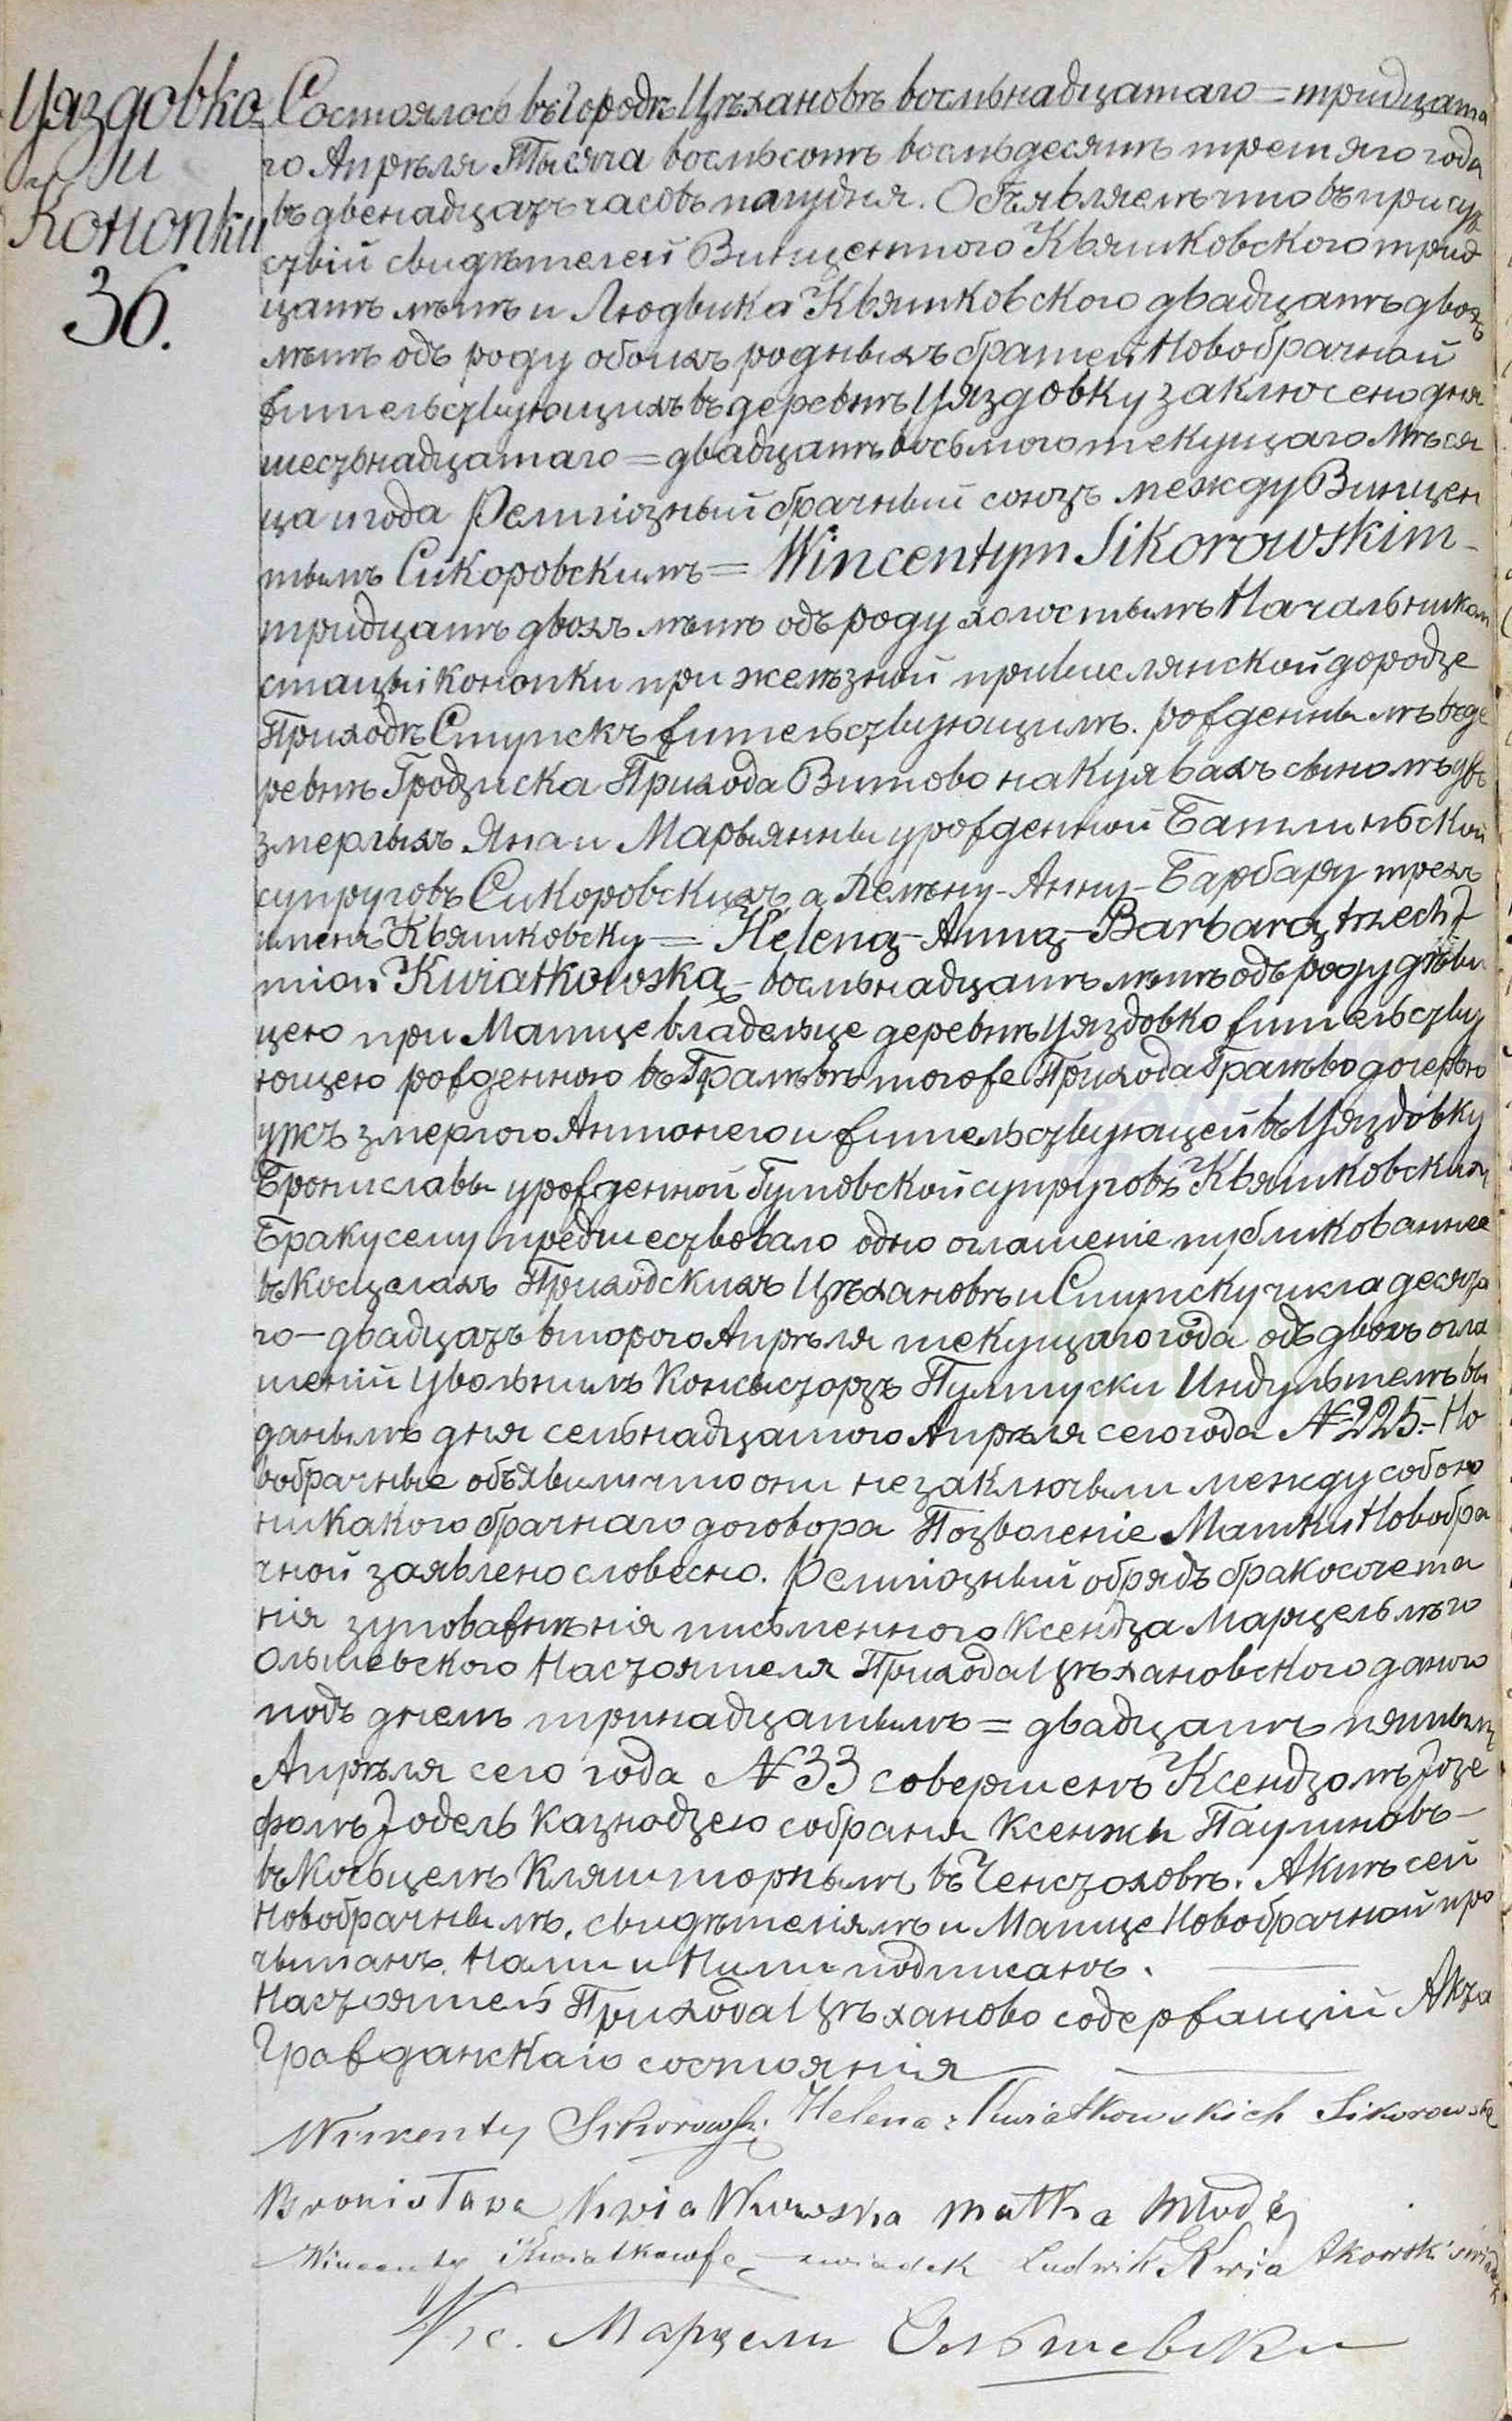 Уяздовко
и
Конопки
36.
Состоялось въ Городѣ Цѣхановѣ восьмьнадцатаго = тридцата
го Апрѣля Тысяча восмьсотъ восмьдесятъ третяго года
въ двенадцать часовъ полудня. Объявляемъ что въ присут
ствіи свидѣтелей Винцентого Квятковского трид
цать лѣтъ и Людвика Квятковского двадцать двохъ
лѣтъ одъ роду обоихъ родныхъ братей Новобрачной
жительствующихъ въ деревнѣ Уяздовку заключено дня
шестьнадцатаго = двадцать восьмого текущаго Мѣся
ца и года Религіозный брачный союзъ между Винцен
тымъ Сикоровскимъ = Wincentym Sikorowskim –
тридцать двохъ лѣтъ одъ роду холостымъ Начальником
стацыи Конопки при желѣзной привислянской дородзе
Приходѣ Ступскъ жительствующимъ. рожденнымъ въ де
ревнѣ Гродзиска Прихода Витово на Куявахъ сыномъ ужъ
змерлыхъ Яна и Марьянны урожденной Батлинской
супруговъ Сикоровскихъ а Гелѣну-Анну-Барбару трехъ
имена Квятковску = Helenę-Annę-Barbarę trzech I
mion Kwiatkowską – восьмьнадцать лѣтъ одъ роду дѣви
цею при Матце владелице деревнѣ Уяздовко жительству
ющею рожденною въ Гралѣвѣ тогоже Прихода Гралѣво дочерью
ужъ змерлого Антонего и жительствующей въ Уяздовку
Брониславы урожденной Гумовской супруговъ Квятковскихъ
Браку сему предшествовало одно оглашеніе публикованнее
въ Косцелахъ Приходскихъ Цѣхановѣ и Ступску числа десята
го – двадцать второго Апрѣля текущаго года одъ двохъ огла
шеній увольнилъ Консысторъ Пултуски Индультемъ вы
данымъ дня семьнадцатого Апрѣля сего года № 225.– Но
вобрачные объявили что они не заключили между собою
никакого брачнаго договора Позволеніе Матки Новобра
чной заявлено словесно. Религіозный обрядъ бракосочета
нія зуповажнѣнія письменного Ксендза Марцельлѣго
Ольшевского Настоятеля Прихода Цѣхановского даного
подъ днемъ тринадцатымъ = двадцать пятымъ
Апрѣля сего года № 33 совершенъ Ксендзомъ Іозе
фомъ Іодель Казнодзею собраня Ксенжи Паулиновъ –
въ Косьцелѣ Кляшторнымъ въ Ченстоховѣ. Актъ сей
Новобрачнымъ, свидѣтелямъ и Матце Новобрачной про
чытанъ. Нами и Ними подписанъ.
Настоятель Прихода Цѣханово содержащій Акта
Гражданскаго состоянія
Wincenty Sikorowski Helena z Kwiatkowskich Sikorowska
Bronisława Kwiatkowska matka młodej
Wincenty Kwiatkowski swiadek Ludwik Kwiatkowski świadek
Кс. Марцели Ольшевски